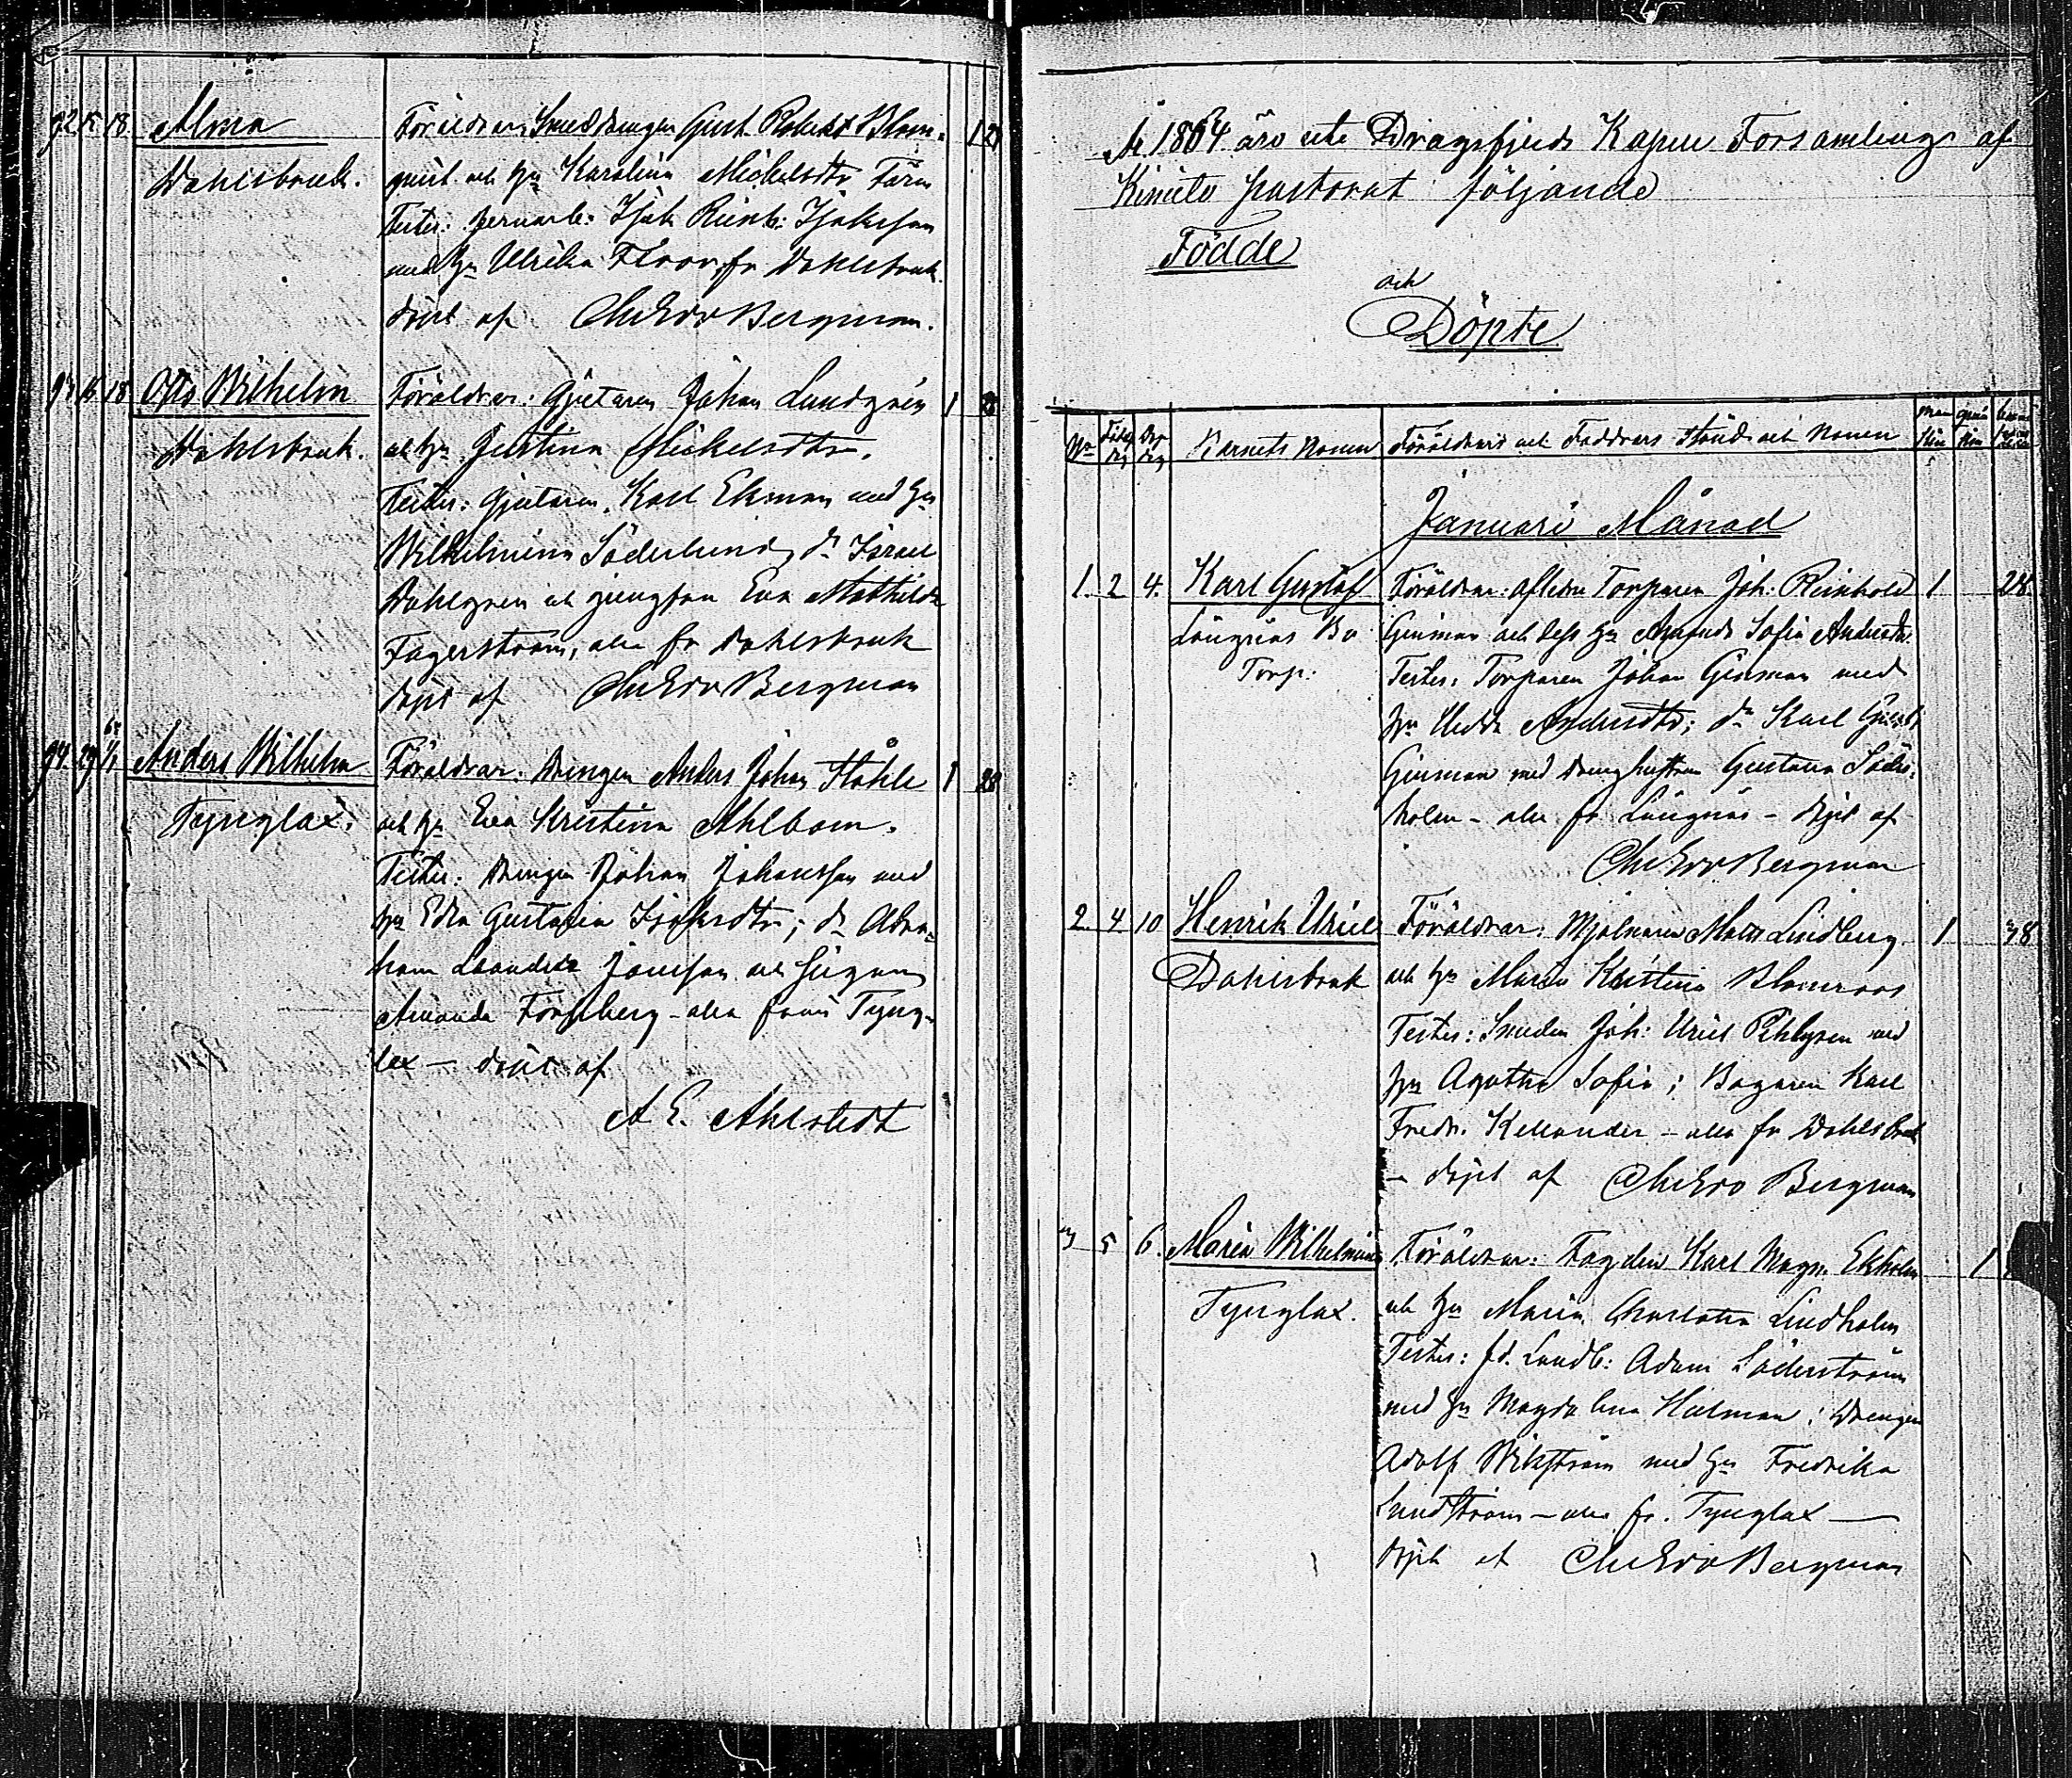 92. 15. 18. Alma
Dahlsbruk.
Föräldrar: Smeddrengen Gust. Robert Blom-
qvist och hu Karolina Michelsdtr Färm
Testes:
med hu Ulrika fr Dahlsbruk
döpt af Bergman.
1 23
93. 15. 18 Otto Wilhelm
Dahlsbruk.
Föräldrar: Gjutaren Johan Lundgren
och hu Justina Mickelsdtr.
Testes: Gjutaren Karl Ekman med hu
Wilhelmina Söderlund, do Israel
Dahlgren och jungfrun Eva Mathilda
Fagerström, alla fr Dahlsbruk
döpt af Bergman
1
94. 29 1/1 Anders Wilhelm
Tynglax.
Föräldrar: Drengen Anders Johan Ståhle
och hu Eva Kristina Ahlbom.
Testes: Drengen Johan Johansson med
hu Edla Gustava Isaksdtr; do Abra-
ham Leander Jansson och pigan
Amanda Forsberg - alla från Tyng-
lax — döpt af
A E. Ahlstedt
1 28
År 1864 äro uti Dragsfjerds Kapell Församling af
Kimito pastorat följande
Födde
och
Döpte
No Föd. dag Döp. dag Barnets Namn Föräldrars och Faddrars Stånd och Namn Man kön Qvin kön
Januari Månad
1. 2 4. Karl Gustaf
Långnäs Bo
Torp.
Föräldrar: Aflidne Torparen Joh: Reinhold
Ginman och dess hu Amanda Sofia Andersdtr.
Testes: Torparen Johan Ginman med
hu Hedda Andersdtr; do Karl Gust:
Ginman med drenghustrun Gustava Söder-
holm - alla fr Långnäs - döpt af
Bergman
1 28.
2. 4 10 Henrik Uriel
Dahlsbruk
Föräldrar: Mjölnaren Matts Lindberg
och hu Maria Kristina Blomroos
Testes: Smeden Joh: Uriel Pihlgren med
hu Agatha Sofia; Bagaren Karl
Fredr. Kellander - alla fr Dahlsbruk
- döpt af Bergman
1 38
3 5 6. Maria Wilhelmina
Tynglax.
Föräldrar: Karl Magn. Ekholm
och hu Maria Charlotta Lindholm
Testes: fd. Landb: Adam Söderström
med hu Magdalena Holman; Drengen
Adolf Wikström med hu Fredrika
Lindström - alla fr. Tynglax —
döpt af Bergman
1